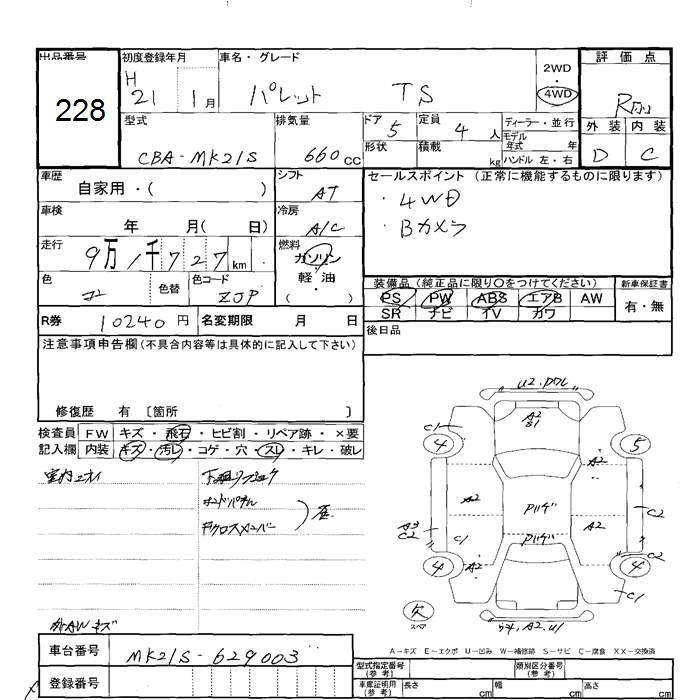 出品番号
228
初度登録年月
H
21 1月
車名・グレード
パレット TS
2WD
・
4WD
評価点
外装 内装
D C
型式
CBA-MK21S
排気量
660cc
ドア 5
形状
定員 4 人
積載 kg
ディーラー・並行
モデル年式 年
ハンドル 左・右
車歴
自家用・( )
シフト
AT
セールスポイント (正常に機能するものに限ります)
・4WD
・Bカメラ
車検
年 月( 日)
冷房
A/C
走行
9万1千727km
燃料
ガソリン
軽・油
( )
色
色替
色コード
ZJP
装備品 (純正品に限り○をつけてください)
PS PW ABS エアB AW
SR ナビ TV カワ
新車保証書
有・無
R券 10240円
名変期限 月 日
後日品
注意事項申告欄 (不具合内容等は具体的に記入して下さい)
修復歴 有 〔箇所 〕
検査員記入欄
FW キズ・飛石・ヒビ割・リペア跡・×要
内装 キズ・汚レ・コゲ・穴・スレ・キレ・破レ
U2.
C1
4
A2
5
A2
A2
A2
C2
A3
C2
C1
C2
4
A2
4
C1
欠
スペア
A2.U1
A-キズ E-エクボ U-凹み W-補修跡 S-サビ C-腐食 XX-交換済
AWキズ
車台番号 MK21S-629003
登録番号
型式指定番号
(参考)
類別区分番号
(参考)
車庫証明用
(参考)
長さ cm
幅 cm
高さ cm